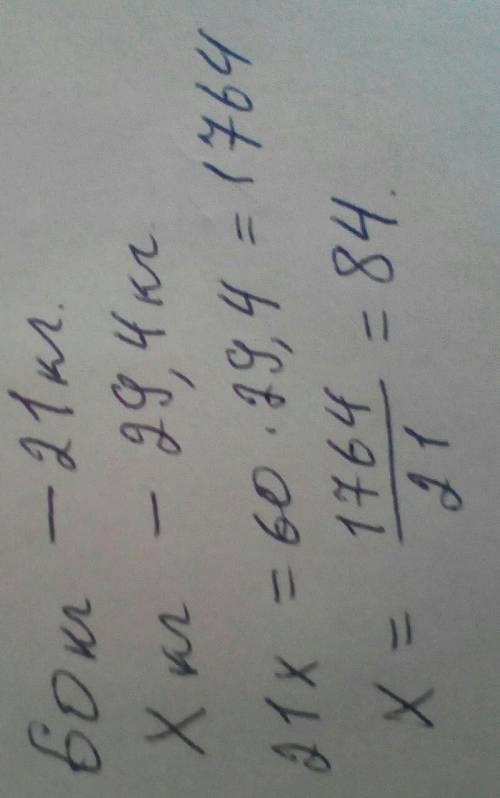 60кг – 21кг.
Xкг – 29,4кг
21x = 60 · 29,4 = 1764
x = 1764/21 = 84.